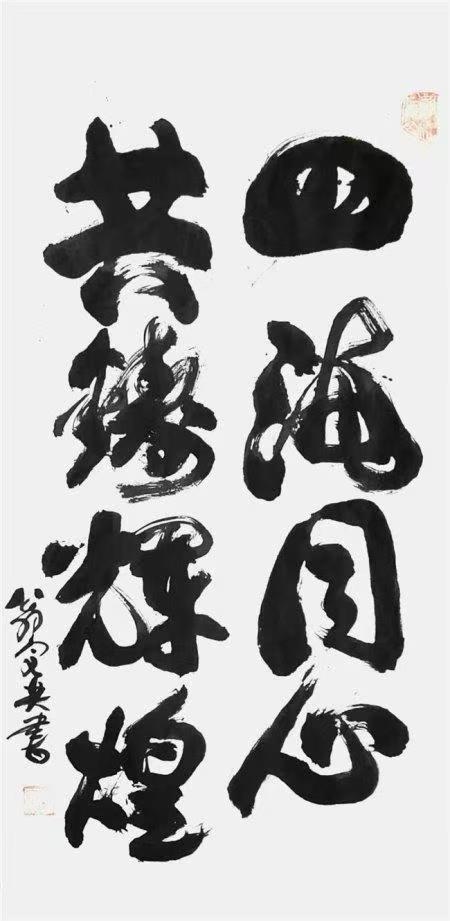 四海同心
共铸辉煌